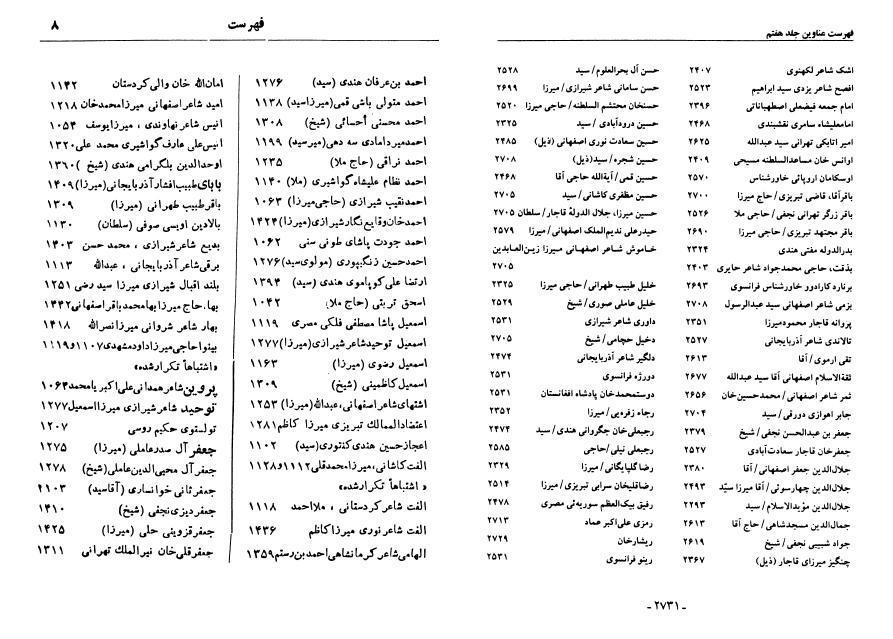 فهرست عناوین جلد هفتم
اشک شاعر لکهنوی ۲۴۰۷
افصح شاعر یزدی سید ابراهیم ۲۵۲۳
امام جمعه فیضعلی اصطهباناتی ۲۳۹۶
امامعلیشاه سامری نقشبندی ۲۴۶۸
امیر اتابکی تهرانی سید عبدالله ۲۶۲۵
اوانس خان مساعدالسلطنه مسیحی ۲۴۰۹
اوسکامان اروپائی خاورشناس ۲۵۷۰
باقرآقا، قاضی تبریزی/ حاج میرزا ۲۷۰۰
باقر زرگر تهرانی نجفی/ حاجی ملا ۲۵۲۶
باقر مجتهد تبریزی/ حاجی میرزا ۲۶۹۰
بدرالدوله مفتی هندی ۲۳۲۴
بذقت، حاجی محمدجواد شاعر حایری ۲۴۰۳
برنارد کارادوو خاورشناس فرانسوی ۲۶۹۳
بزمی شاعر اصفهانی سید عبدالرسول ۲۷۰۸
پروانه قاجار محمودمیرزا ۲۳۵۱
تالاندی شاعر آذربایجانی ۲۵۲۷
تقی ارموی/ آقا ۲۶۱۳
ثقةالاسلام اصفهانی آقا سید عبدالله ۲۶۷۷
ثمر شاعر اصفهانی/ محمدحسین‌خان ۲۶۵۶
جابر اهوازی دورقی/ سید ۲۷۰۴
جعفر بن عبدالحسن نجفی/ شیخ ۲۳۷۹
جعفرخان قاجار سعادت‌آبادی ۲۵۲۷
جلال‌الدین جعفر اصفهانی/ آقا ۲۳۸۰
جلال‌الدین چهارسوئی/ آقا میرزا سیّد ۲۴۹۳
جلال‌الدین مؤیدالاسلام/ سید ۲۲۹۳
جمال‌الدین مسجدشاهی/ حاج آقا ۲۶۱۳
جواد شبیبی نجفی/ شیخ ۲۶۱۹
چنگیز میرزای قاجار (ذیل) ۲۳۶۷
حسن آل بحرالعلوم/ سید ۲۵۲۸
حسن سامانی شاعر شیرازی/ میرزا ۲۶۹۹
حسنخان محتشم السلطنه/ حاجی میرزا ۲۵۲۰
حسین درودآبادی/ سید ۲۳۲۵
حسین سعادت نوری اصفهانی (ذیل) ۲۴۸۵
حسین شجره/ سید(ذیل) ۲۷۰۸
حسین قمی/ آیةالله حاجی آقا ۲۴۶۸
حسین مظفری کاشانی/ سید ۲۷۰۵
حسین میرزا، جلال الدولهٔ قاجار/ سلطان ۲۷۰۵
حیدرعلی ندیم‌الملک اصفهانی/ میرزا ۲۵۷۹
خاموش شاعر اصفهانی میرزا زین‌العابدین
۲۷۰۵
خلیل طبیب طهرانی/ حاجی میرزا ۲۳۲۵
خلیل عاملی صوری/ شیخ ۲۵۲۹
داوری شاعر شیرازی ۲۵۳۱
دخیل حجامی/ شیخ ۲۷۰۵
دلگیر شاعر آذربایجانی ۲۴۷۴
دورژه فرانسوی ۲۵۳۱
دوستمحمدخان پادشاه افغانستان ۲۵۳۱
رجاء زفره‌یی/ میرزا ۲۳۵۲
رجبعلی‌خان جگروانی هندی/ سید ۲۴۷۴
رجبعلی نیلی/حاجی ۲۵۸۵
رضا گلپایگانی/ میرزا ۲۳۲۹
رضاقلیخان سرابی تبریزی/ میرزا ۲۵۱۴
رفیق بیک‌العظم سوریه‌ئی مصری ۲۴۷۸
رمزی علی‌اکبر عماد ۲۷۱۳
ریشارخان ۲۷۲۹
رینو فرانسوی ۲۵۳۱
- ۲۷۳۱ -
فهرست
۸
احمد بن‌عرفان هندی (سید) ۱۲۷۶
احمد متولی باشی قمی(میرزاسید) ۱۱۳۸
احمد محسنی أحسائی (شیخ) ۱۳۰۸
احمدمیردامادی سه دهی(میرسید) ۱۱۹۹
احمد نراقی (حاج ملا) ۱۲۳۵
احمد نظام علیشاه گواشیری (ملا) ۱۱۴۰
احمدنقیب شیرازی (حاجی‌میرزا) ۱۰۶۳
احمدخان‌وقایع‌نگارشیرازی(میرزا) ۱۴۲۴
احمد جودت پاشای طونی سنی ۱۰۶۲
احمدحسین زنگیپوری (مولوی‌سید) ۱۲۷۶
ارتضا علی‌کوپاموی هندی (سید) ۱۳۹۴
اسحق تربتی (حاج ملا) ۱۰۴۲
اسمعیل پاشا مصطفی فلکی مصری ۱۱۱۹
اسمعیل توحیدشاعرشیرازی(میرزا) ۱۲۷۷
اسمعیل رضوی (میرزا) ۱۱۶۳
اسمعیل‌کاظمینی (شیخ) ۱۳۰۹
اشتهای‌شاعراصفهانی،عبدالله(میرزا) ۱۲۵۳
اعتضادالممالک تبریزی میرزا کاظم ۱۲۸۱
اعجازحسین هندی‌کنتوری(سید) ۱۱۰۲
الفت‌کاشانی،میرزامحمدقلی ۱۱۱۲و۱۱۲۸
«اشتباهاً تکرارشده»
الفت شاعر کردستانی ، ملااحمد ۱۱۱۸
الفت شاعر نوری میرزاکاظم ۱۴۳۶
الهامی‌شاعرکرمانشاهی‌احمدبن‌رستم ۱۳۵۹
امان‌الله خان والی‌کردستان ۱۱۴۲
امید شاعراصفهانی میرزامحمدخان ۱۲۱۸
انیس شاعر نهاوندی ، میرزایوسف ۱۰۵۴
انیس‌علی عارف‌گواشیری محمد علی ۱۳۲۰
اوحدالدین بلگرامی هندی (شیخ) ۱۳۶۰
پاپای‌طبیب‌افشارآذربایجانی(میرزا) ۱۴۰۹
باقرطبیب طهرانی (میرزا) ۱۳۰۹
بالادین اویسی صوفی (سلطان) ۱۱۳۰
بدیع شاعرشیرازی ، محمد حسن ۱۴۰۳
برقی‌شاعر آذربایجانی ، عبدالله ۱۱۱۳
بلند اقبال شیرازی میرزا سید رضی ۱۲۵۱
بهاء، حاج میرزا بهامحمدباقراصفهانی ۱۴۴۲
بهار شاعر شروانی میرزانصرالله ۱۴۱۸
بینواحاجی‌میرزاداودمشهدی ۱۱۰۷و۱۱۱۹
«اشتباهاً تکرارشده»
پروین‌شاعرهمدانی‌علی‌اکبریامحمد ۱۰۶۴
توحید شاعر شیرازی میرزااسمعیل ۱۲۷۷
تولستوی حکیم روسی ۱۲۰۷
جعفر آل صدرعاملی (میرزا) ۱۲۷۵
جعفرآل محیی‌الدین‌عاملی(شیخ) ۱۲۷۸
جعفرثانی خوانساری (آقاسید) ۱۱۰۳
جعفردیزی‌نجفی (شیخ) ۱۴۱۰
جعفرقزوینی حلی (میرزا) ۱۴۲۵
جعفرقلی‌خان نیرالملک تهرانی ۱۳۱۱